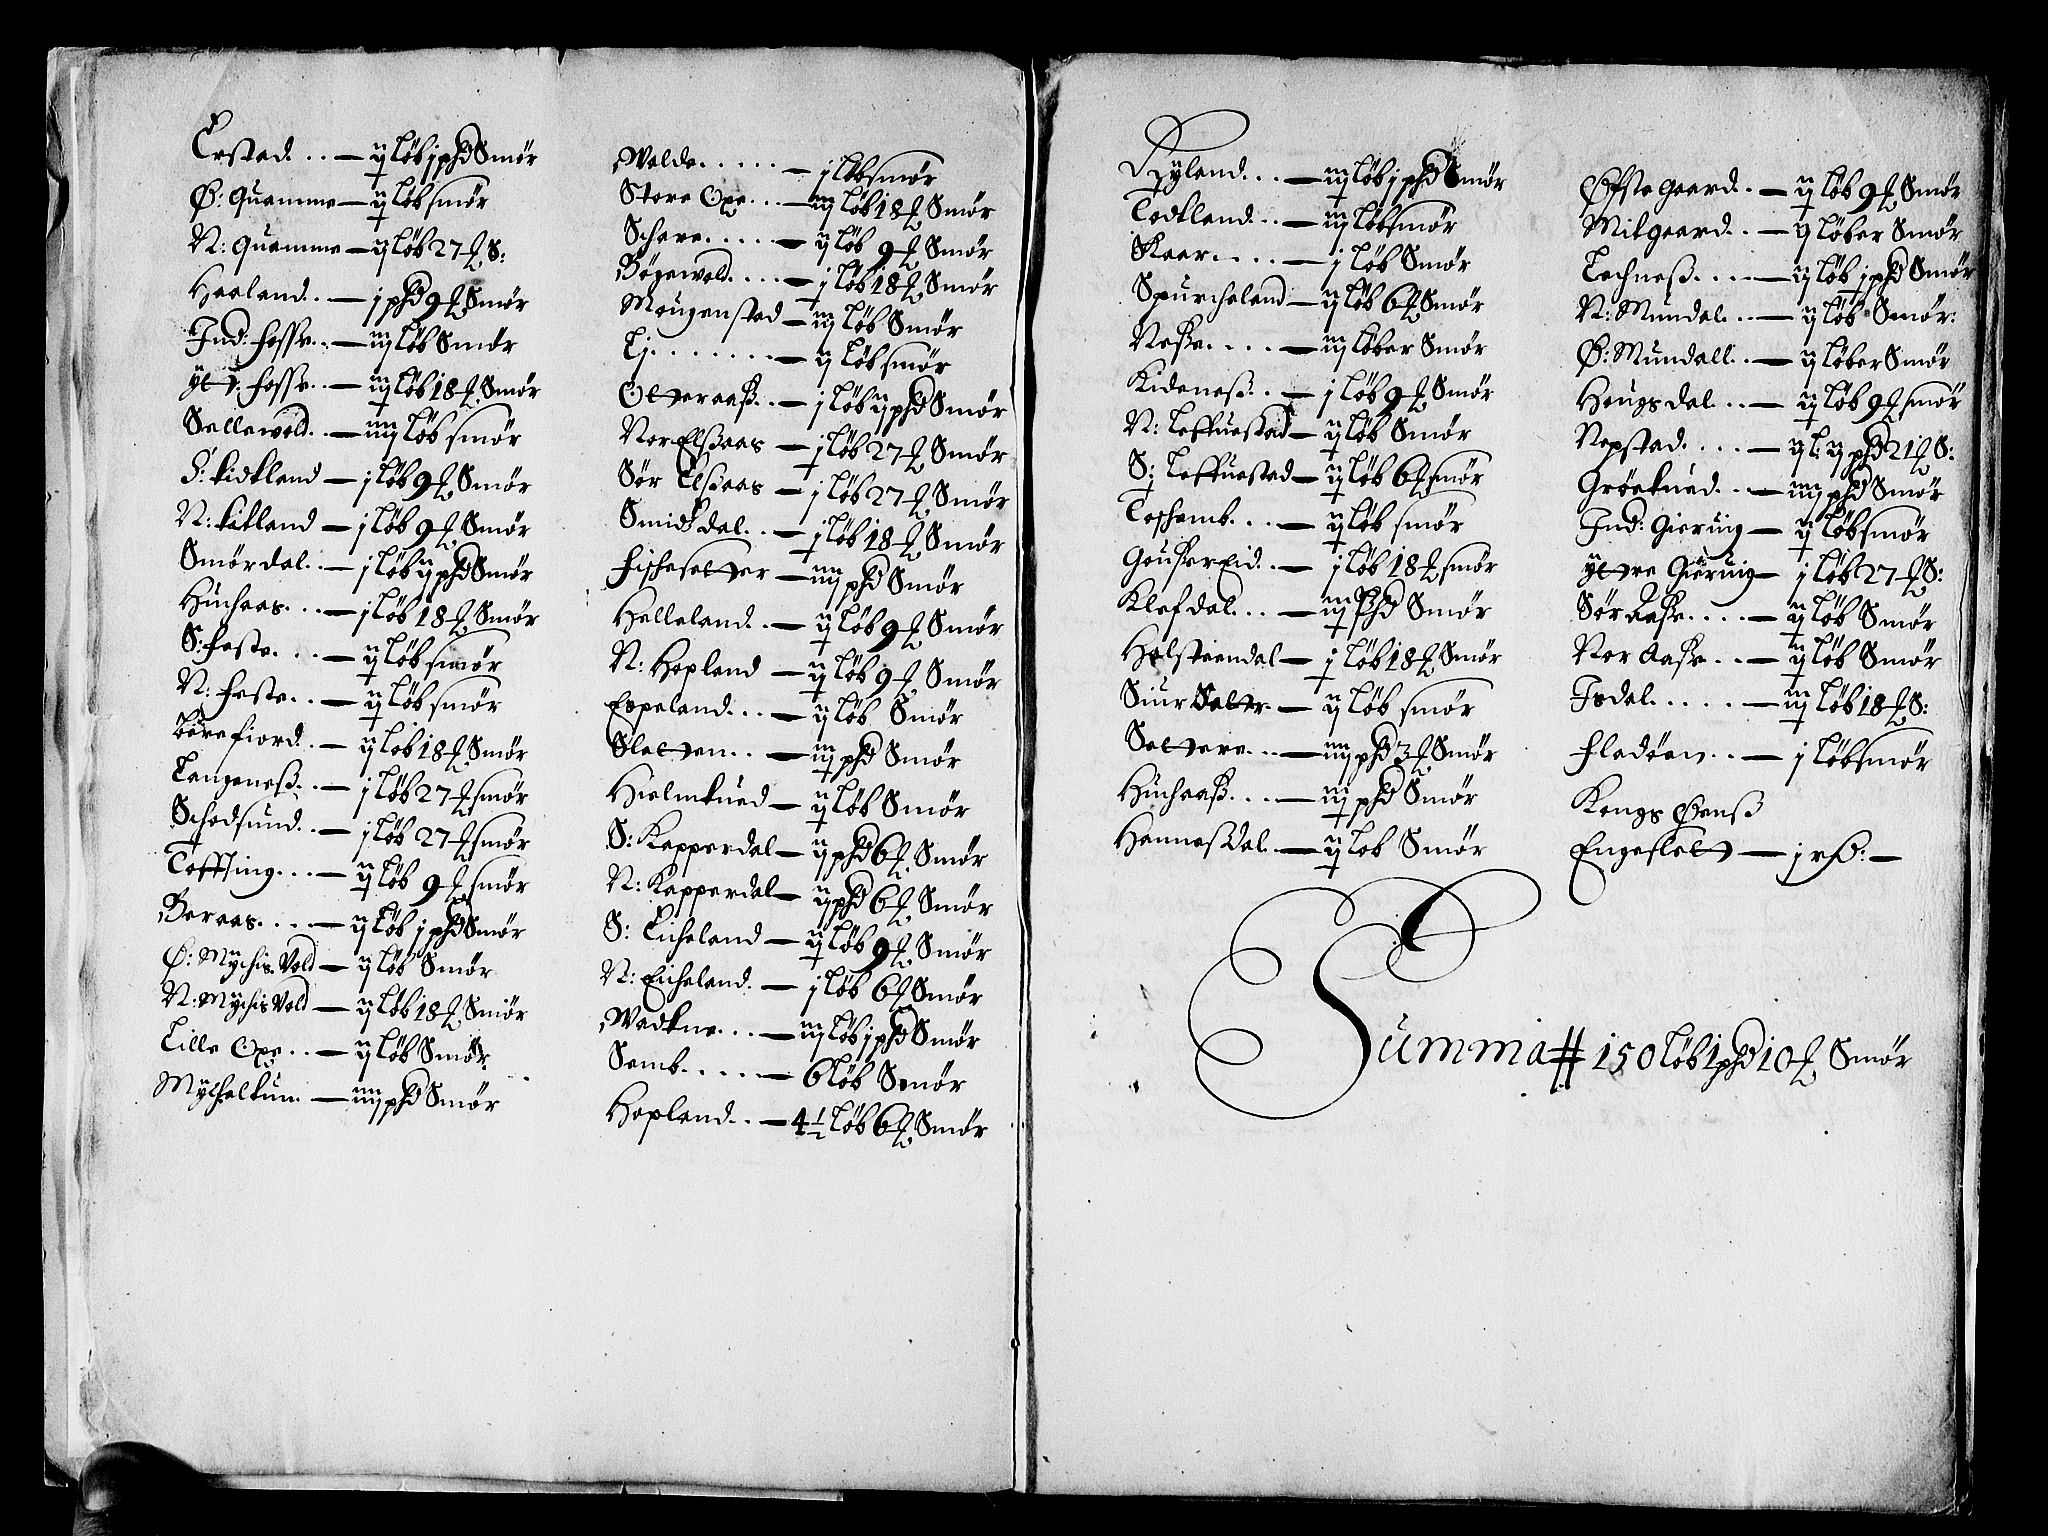 Erstad. . . — ij løb j phd Smør
Ø: Quamme — ij løb smør
N: Quamme — ij løb 27 ℔ S:
Haaland. . — j phd 9 ℔ Smør
Ind: fosse. . — iij løb Smør
ÿtt: fosse. . — iij løb 18 ℔ Smør
Sellevold. . — iiij løb smør
S: kidkland — j løb 9 ℔ Smør
N: kikland — j løb 9 ℔ Smør
Smørdal. . — j løb ij phd Smør
Huchaas. . . — j løb 18 ℔ Smør
S: feste. . . — ij løb smør
N: feste. . — ij løb smør
børefiord. . — ij løb 18 ℔ Smør
Langeneß. . — j løb 27 ℔ smør
Schodsund. . — j løb 27 ℔ smør
Toffting. . . — ij løb 9 ℔ smør
Beraas. . . . — ij løb j phd Smør
Ø: Mÿchis Vold — ij løb Smør
N: Mÿchis Vold — ij løb 18 ℔ Smør
Lille Oxe. . — ij løb Smør
Mÿchelkum — iiij phd Smør
Walde. . . . . — j løb smør
Store Oxe. . . — iij løb 18 ℔ Smør
Schare. . . . . — ij løb 9 ℔ Smør
Bøgevold. . . . — j løb 18 ℔ Smør
Mougenstad — iij løb Smør
Li. . . . . . . — ij løb smør
Otteraaß. . — j løb ij phd Smør
Nor Elßaas — j løb 27 ℔ Smør
Sør Elßaas — j løb 27 ℔ Smør
Smidkdal. . — j løb 18 ℔ Smør
Fischesetter — iiij phd Smør
Helleland. . — ij løb 9 ℔ Smør
N: Hopland — ij løb 9 ℔ Smør
Espeland. . . — ij løb Smør
Sletten. . . — iij phd Smør
Hielmkued — ij løb Smør
S: Kapperdal — ij phd 6 ℔ Smør
N: Kapperdal — ij phd 6 ℔ Smør
S: Eicheland — ij løb 9 ℔ Smør
N: Eicheland. — j løb 6 ℔ Smør
Wadkne. . . — iij løb j phd Smør
Semb. . . . . — 6 løb Smør
Hopland. . — 4½ løb 6 ℔ Smør
Rÿland. . . — iij løb j phd Smør
Todkland. . . — iij løb smør
Skaar. . . . — j løb Smør
Spurcheland — ij løb 6 ℔ Smør
Neße. . . . — iij løber Smør
Kideneß. . . — j løb 9 ℔ Smør
N: Loffuestad — ij løb Smør
S: Loffuestad — ij løb 6 ℔ smør
Toschamb. . . — ij løb smør
Gousereid. . — j løb 18 ℔ smør
Klefdal. . . — iij phd Smør
Holsteendal — j løb 18 ℔ Smør
Siur Setter — ij løb smør
Settere. . . — iiij phd 3 ℔ Smør
Huchaaß. . . — iij phd Smør
Hannesdal. . — ij løb Smør
Øfste Gaard. . — ij løb 9 ℔ Smør
Mitgaard. . . — ij løber Smør
Lochneß. . . . — ij løb j phd Smør
N: Mundal. . . — ij løb Smør:
Ø: Mundall. . — ij løber Smør
Hougsdal. . . — ij løb 9 ℔ smør
Nepstad. . . . — ij l: ij phd 21 ℔ S:
Grøekued. . — iiij phd Smør
Ind: Gieruig — ij løb smør
ÿttre Gieruig — j løb 27 ℔ S:
Sør Aase. . . . — ij løb Smør
Nor Aase. . . — ij løb Smør
Isdal. . . . . — iij løb 18 ℔ S:
Fladøen. . . — j løb smør
Kongs Øenß
Engeslett — j rß: —
Summa # 150 løb 1 phd 10 ℔ Smør